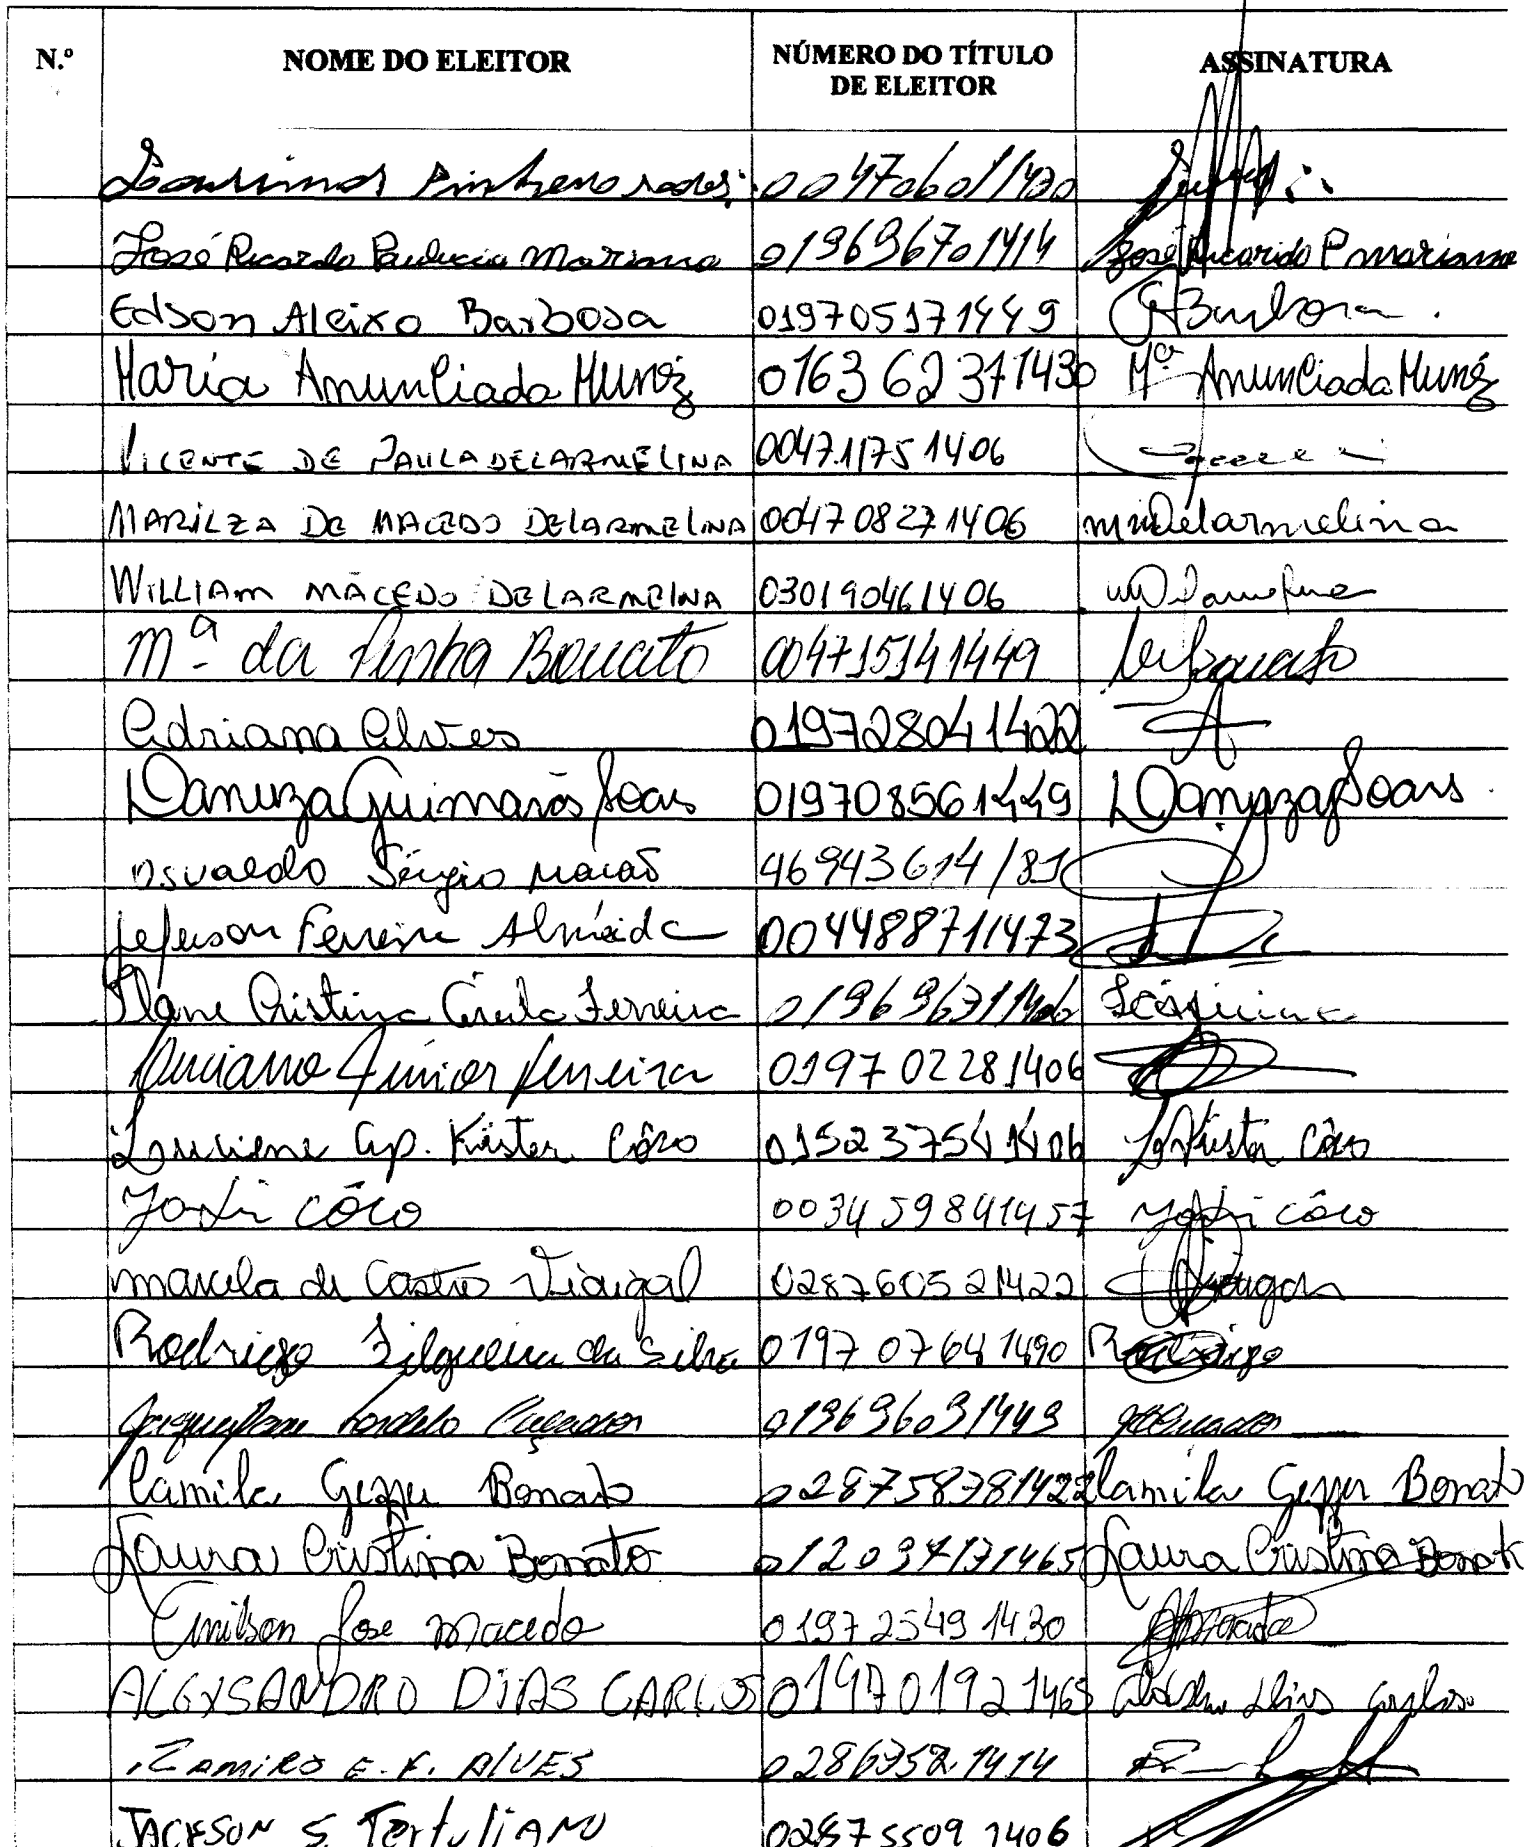 N.º NOME DO ELEITOR NÚMERO DO TÍTULO DE ELEITOR ASSINATURA
Pinheiro 004706011430
José Ricardo Paulucio Mariano 019696701414 José Ricardo P mariano
Edson Aleixo Barbosa 019705171449 Barbosa
Maria Anunciada Muniz 016362371430 Mª Anunciada Muniz
VICENTE DE PAULA DELARMELINA 004711751406
MARILZA DE MACEDO DELARMELINA 004708271406 mmDelarmelina
WILLIAM MACEDO DELARMELINA 030190461406
Mª da Penha Bonato 004715141449
Adriana Alves 019728041422 A
Danuza Guimarães Soares 019708561449 Danuza Soares
Osvaldo Sérgio 46943614/81
Jeferson Ferreira Almeida 004488711473
Cristina Ferreira 019696311406
Luciano Júnior Ferreira 019702281406
Luciene Ap. Küster Côco 015237541406 Küster Côco
côco 003459841457 côco
marcela de Castro Vidigal 028760521422
Rodrigo Filgueira da Silva 019707641490 Rodrigo
019696091449
Camila Gegger Bonato 028758381422 Camila Gegger Bonato
Laura Cristina Bonato 012037131465 Laura Cristina Bonato
Emilson Jose Macedo 019725491430
ALEXSANDRO DIAS CARLOS 019701921465 Dias Carlos
RAMIRO E. F. ALVES 028675821414
JACKSON S. TERTULIANO 028755091406